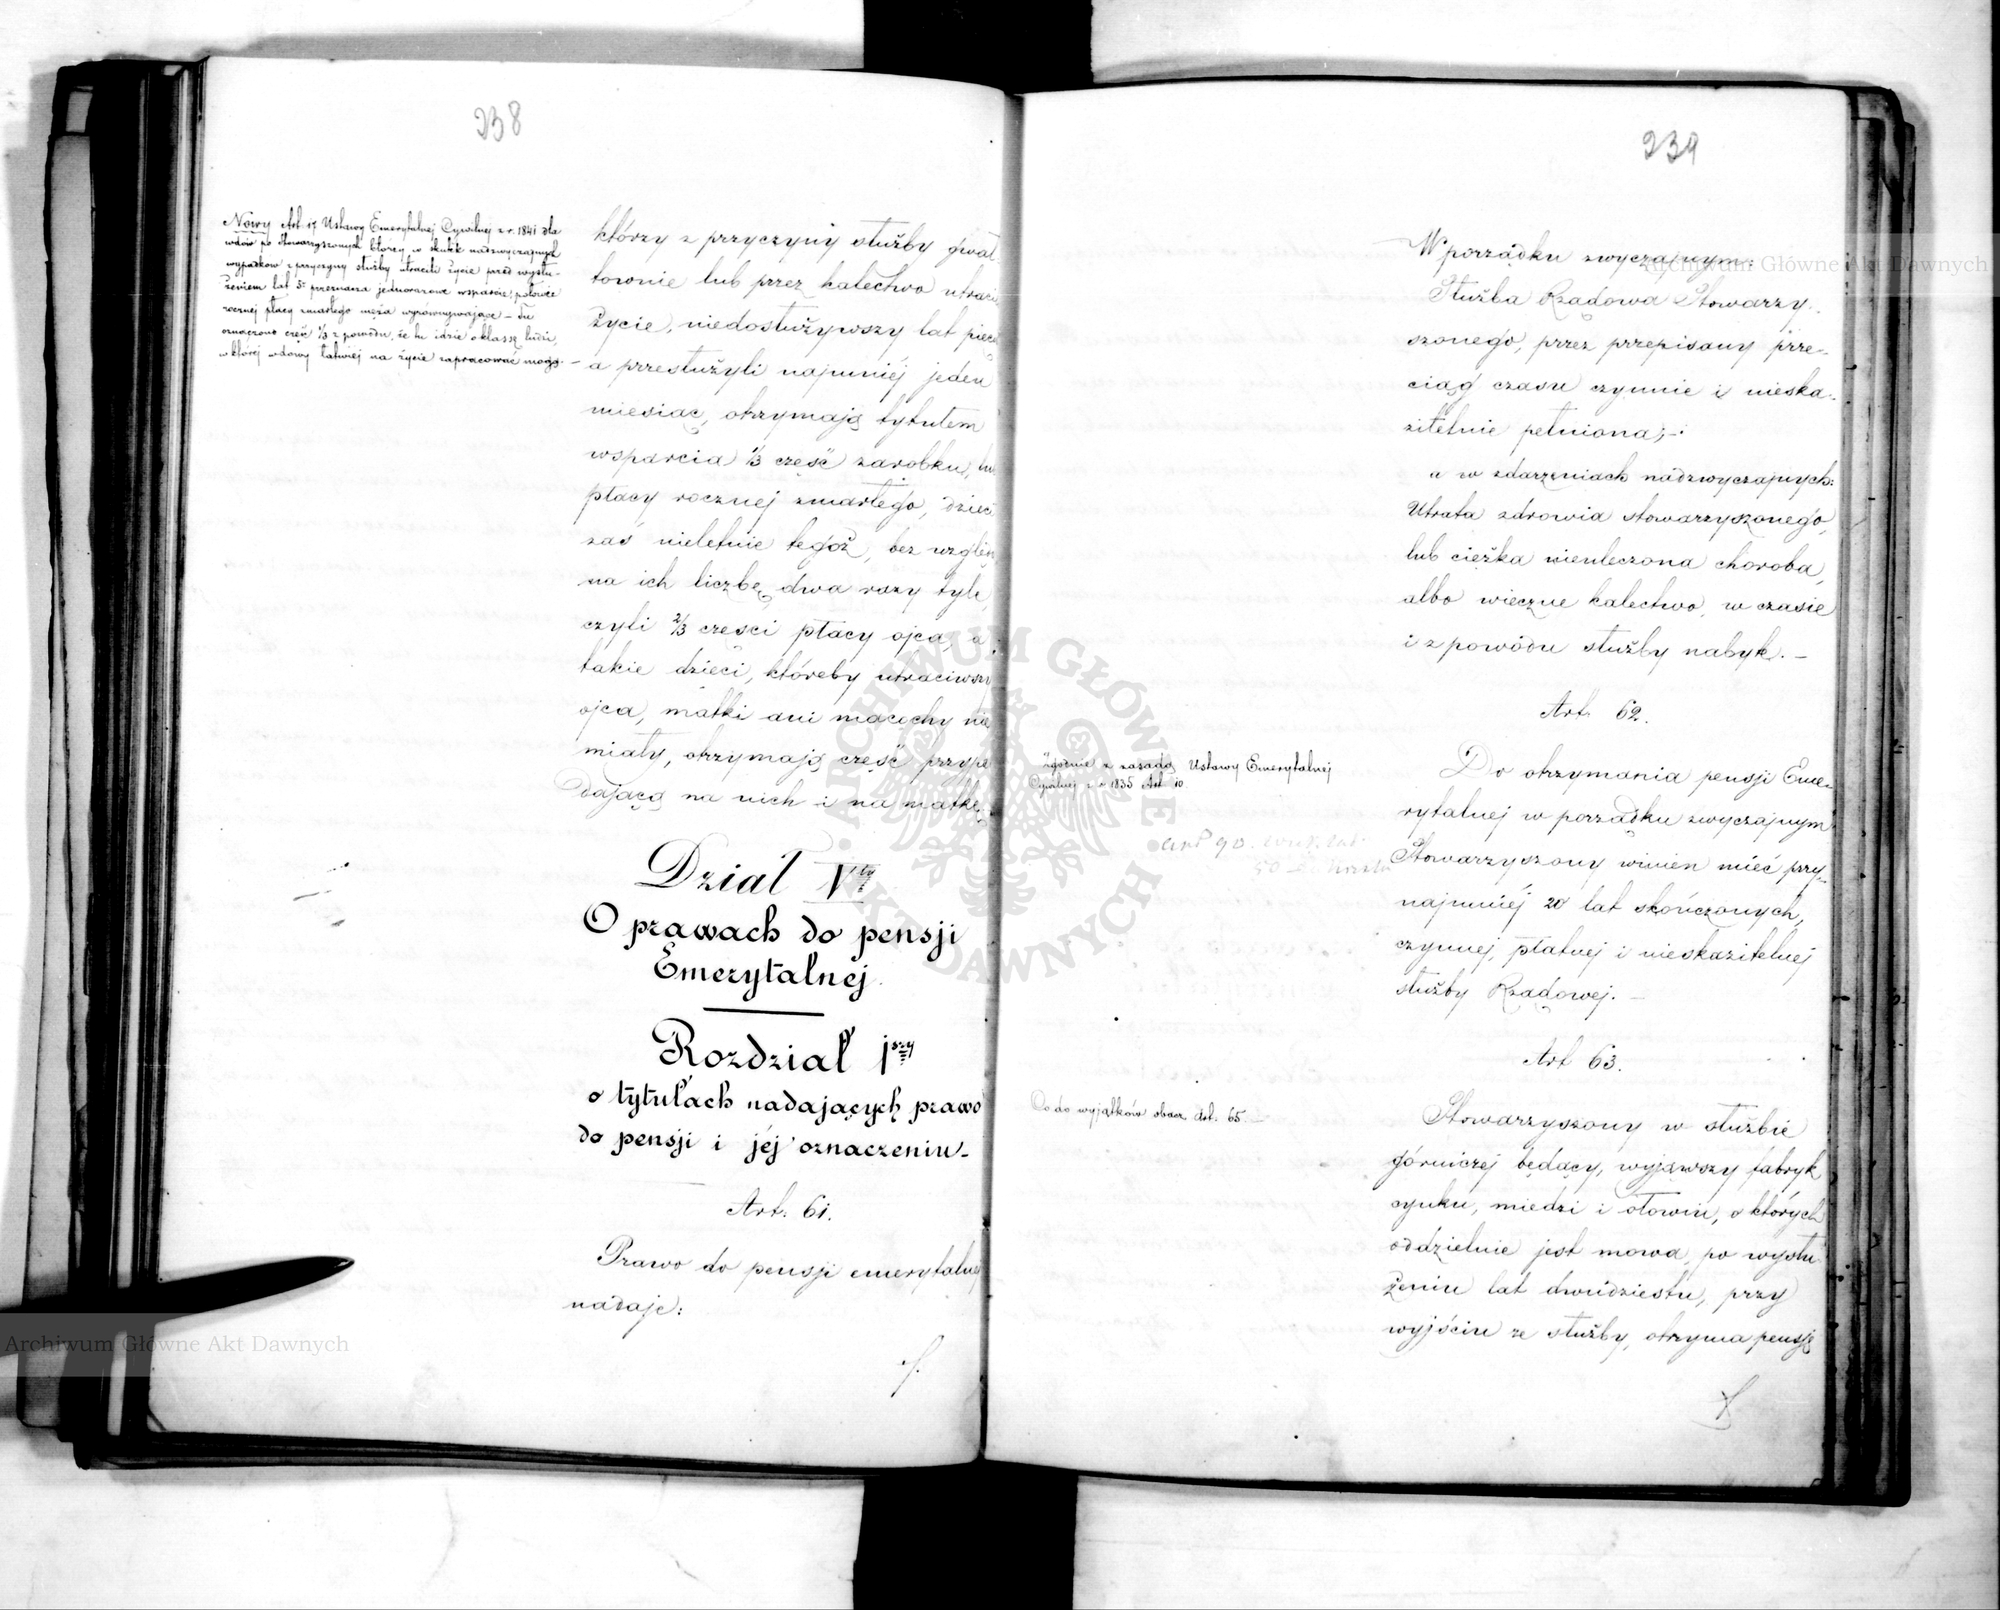 238
Nowy Art 17 Ustawy Emerytalnej Cywilnej z r. 1841 dla
wdów po Stowarzyszonych którzy w skutek nadzwyczajnych
wypadków z przyczyny służby utracili życie przed wysłu-
żeniem lat 5 przeznacza jednorazowe wsparcie, połowie
rocznej płacy zmarłego męża wyrównywające – Tu
oznaczono część 1/3 z powodu, że tu idzie o klassę ludzi,
w której wdowy łatwiej na życie zapracować mogą. –
którzy z przyczyny służby gwał
townie lub przez kalectwo utraci
życie, niedosłużywszy lat pięciu
a przesłużyli najmniej jeden
miesiąc, otrzymają tytułem
wsparcia 1/3 część zarobku, lu
płacy rocznej zmarłego, dzieci
zaś nieletnie tegoż, bez wzglę
na ich liczbę dwa razy tyle,
czyli 2/3 części płacy ojca, a
takie dzieci, któreby utraciwszy
ojca, matki ani macochy nie
miały, otrzymają część przypa
dającą na nich i na matkę
Dział Vty
O prawach do pensji
Emerytalnej.
Rozdział 1szy
o tytułach nadających prawo
do pensji i jéj oznaczeniu –
Art. 61.
Prawo do pensji emerytalnej
nadaje:
239
W porządku zwyczajnym:
Służba Rządowa Stowarzy-
szonego, przez przepisany prze-
ciąg czasu czynnie i nieska-
zitelnie pełniona; –
a w zdarzeniach nadzwyczajnych:
Utrata zdrowia stowarzyszonego,
lub ciężka nieuleczona choroba,
albo wieczne kalectwo, w czasie
i z powodu służby nabyte. –
Art. 62.
Zgodnie z zasadą Ustawy Emerytalnej
Cywilnej z r. 1835 Art. 10
Do otrzymania pensji Eme-
rytalnej w porządku zwyczajnym
Stowarzyszony winien mieć przy-
najmniéj 20 lat skończonych,
czynnej, płatnej i nieskazitelnej
służby Rządowej. –
Art 63.
Co do wyjątków obacz Art. 65. –
Stowarzyszony w służbie
górniczej będący, wyjąwszy fabryk
cynku, miedzi i ołowiu, o których
oddzielnie jest mowa, po wysłu
żeniu lat dwudziestu, przy
wyjściu ze służby, otrzyma pensję
ARCHIWUM GŁÓWNE AKT DAWNYCH
Archiwum Główne Akt Dawnych
Archiwum Główne Akt Dawnych